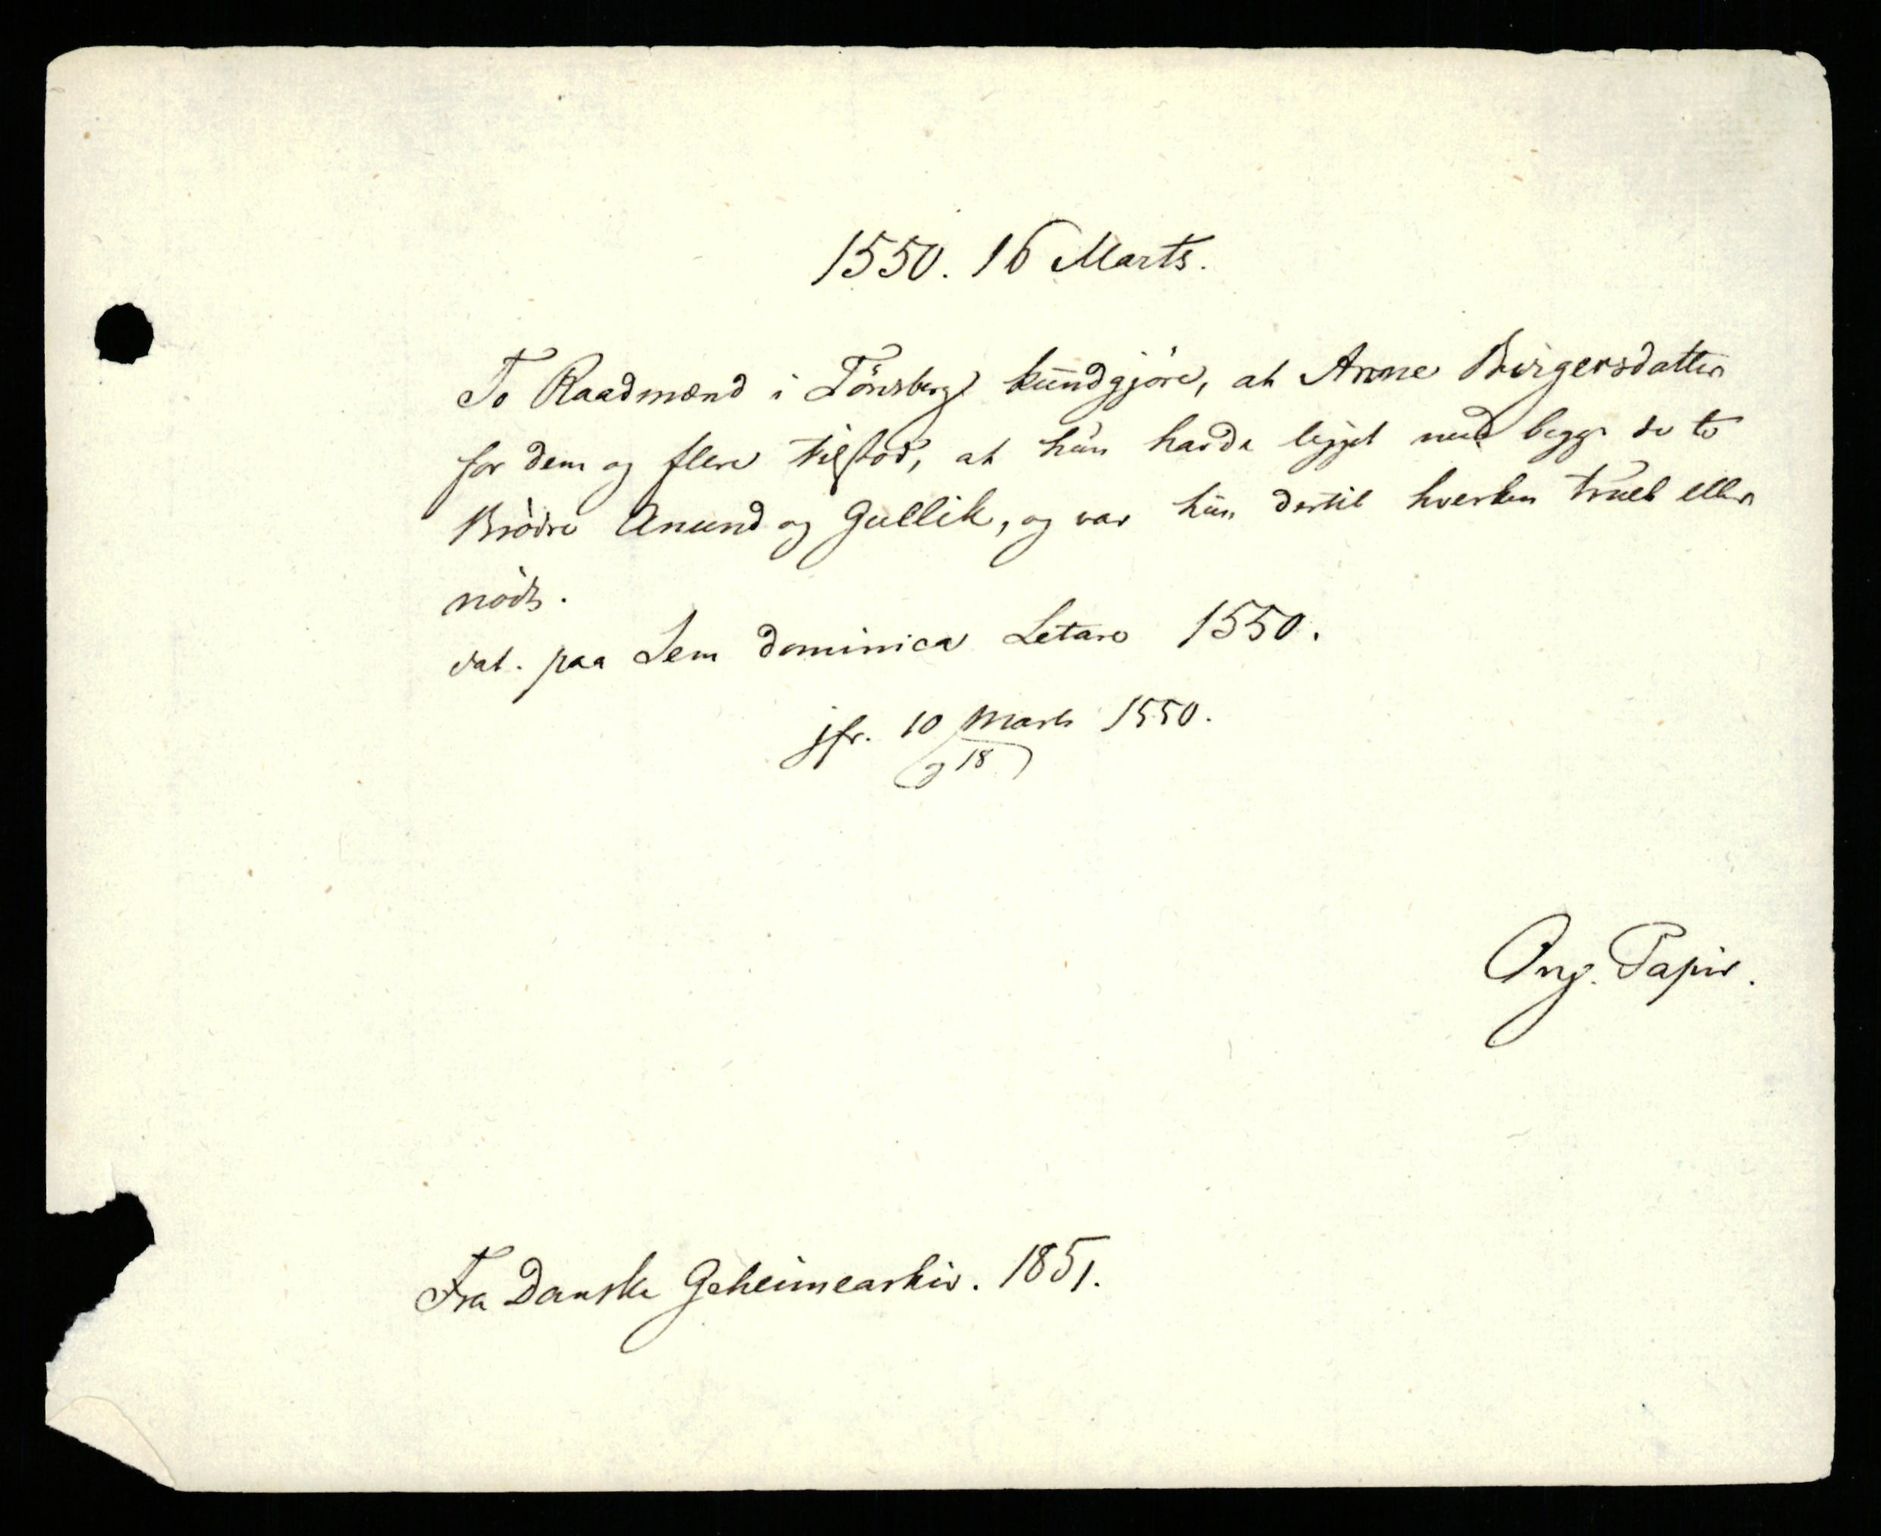 1550. 16 Marts.
To Raadmænd i Tönsberg kundgjöre, at Anne Birgersdatter
for dem og flere tilstod, at hun havde ligget med begge de to
Brödre Anund og Gullik, og var hun dertil hverken truet eller
nödt.
dat. paa Sem dominica Letare 1550.
jfr. 10 Marts 1550.
og 18
Orig. Papir.
Fra Danske Geheimearkiv. 1851.